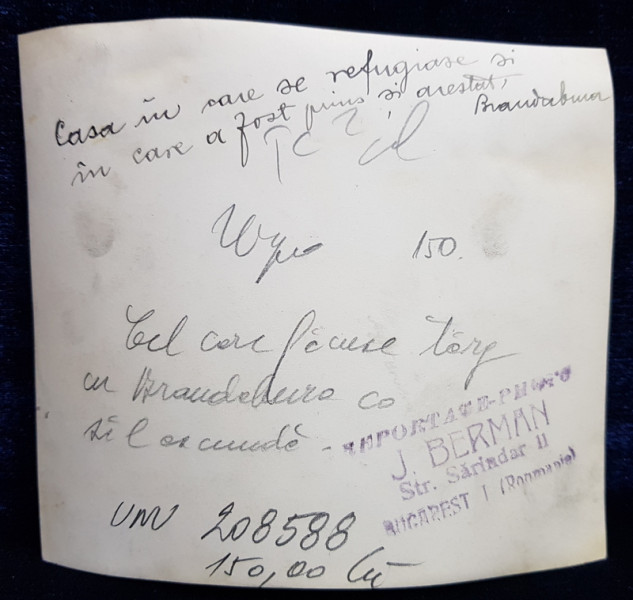 Casa în care se refugiase si
în care a fost prins si arestat,
Brandabura
150.
Cel care făcuse târg
cu Brandabura ca
să-l ascundă -
REPORTATE-PHOTO
J. BERMAN
Str. Sărindar 11
BUCAREST I (Roumanie)
208588
150,00 Lei